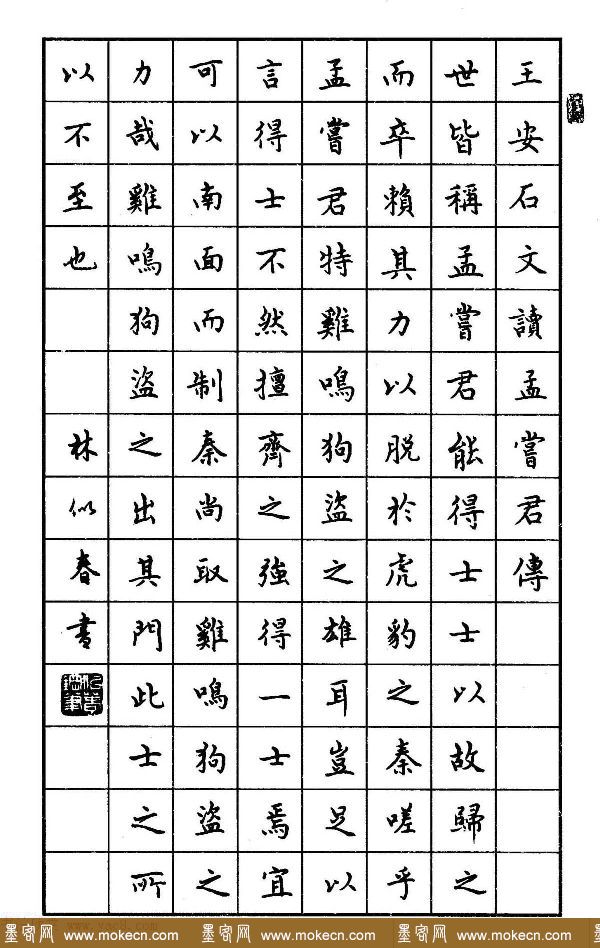 王安石文讀孟嘗君傳
世皆稱孟嘗君能得士士以故歸之
而卒賴其力以脫於虎豹之秦嗟乎
孟嘗君特雞鳴狗盜之雄耳豈足以
言得士不然擅齊之強得一士焉宜
可以南面而制秦尚取雞鳴狗盜之
力哉雞鳴狗盜之出其門此士之所
以不至也 林似春書
墨客网 www.mokecn.com 墨客网 www.mokecn.com 墨客网 www.mokecn.com